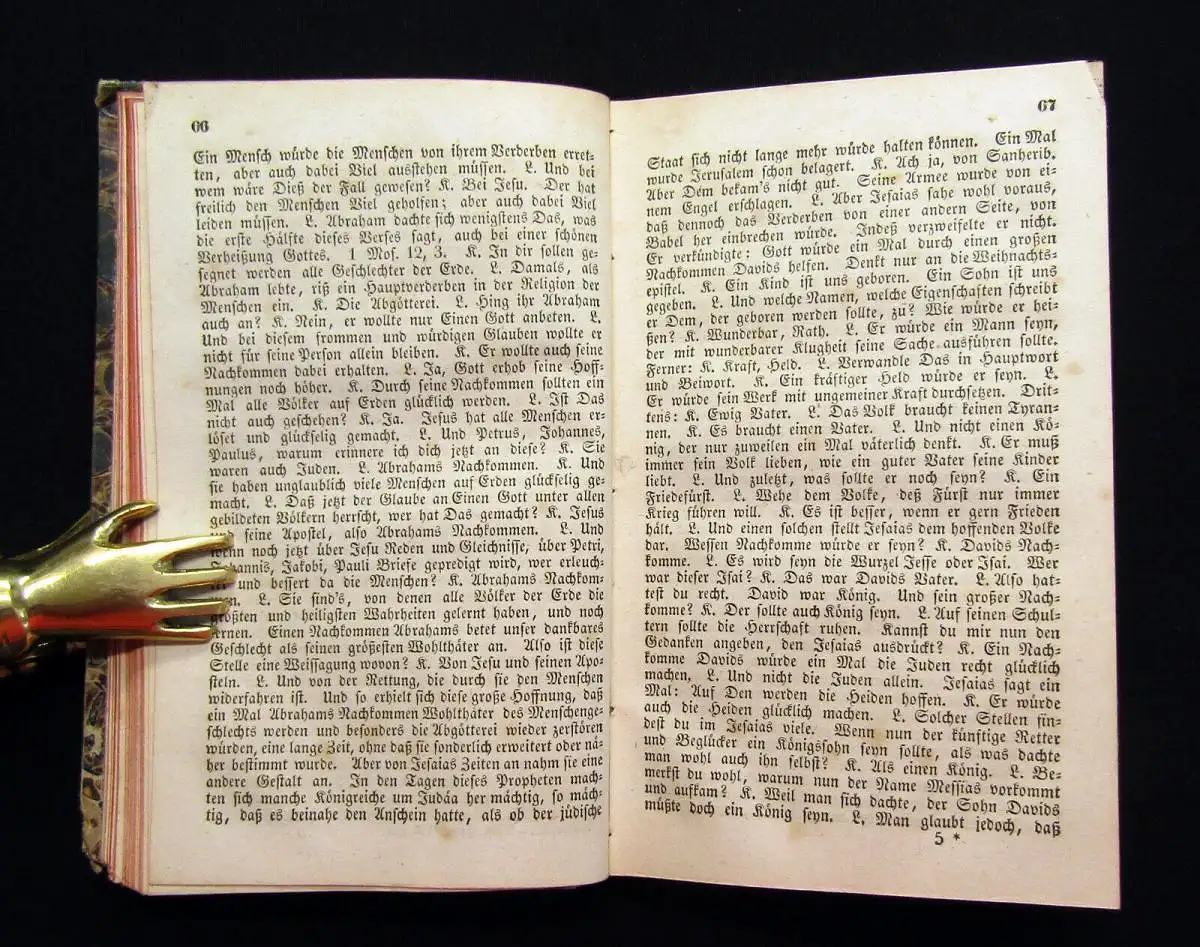 66
Ein Mensch würde die Menschen von ihrem Verderben erret-
ten, aber auch dabei Viel ausstehen müssen. L. Und bei
wem wäre Dieß der Fall gewesen? K. Bei Jesu. Der hat
freilich den Menschen Viel geholfen; aber auch dabei Viel
leiden müssen. L. Abraham dachte sich wenigstens Das, was
die erste Hälfte dieses Verses sagt, auch bei einer schönen
Verheißung Gottes. 1 Mos. 12, 3. K. In dir sollen ge-
segnet werden alle Geschlechter der Erde. L. Damals, als
Abraham lebte, riß ein Hauptverderben in der Religion der
Menschen ein. K. Die Abgötterei. L. Hing ihr Abraham
auch an? K. Nein, er wollte nur Einen Gott anbeten. L.
Und bei diesem frommen und würdigen Glauben wollte er
nicht für seine Person allein bleiben. K. Er wollte auch seine
Nachkommen dabei erhalten. L. Ja, Gott erhob seine Hoff-
nungen noch höher. K. Durch seine Nachkommen sollten ein
Mal alle Völker auf Erden glücklich werden. L. Ist Das
nicht auch geschehen? K. Ja. Jesus hat alle Menschen er-
löset und glückselig gemacht. L. Und Petrus, Johannes,
Paulus, warum erinnere ich dich jetzt an diese? K. Sie
waren auch Juden. L. Abrahams Nachkommen. K. Und
sie haben unglaublich viele Menschen auf Erden glückselig ge-
macht. L. Daß jetzt der Glaube an Einen Gott unter allen
gebildeten Völkern herrscht, wer hat Das gemacht? K. Jesus
und seine Apostel, also Abrahams Nachkommen. L. Und
wenn noch jetzt über Jesu Reden und Gleichnisse, über Petri,
Johannis, Jakobi, Pauli Briefe gepredigt wird, wer erleuch-
und bessert da die Menschen? K. Abrahams Nachkom-
L. Sie sind's, von denen alle Völker der Erde die
größten und heiligsten Wahrheiten gelernt haben, und noch
lernen. Einen Nachkommen Abrahams betet unser dankbares
Geschlecht als seinen größesten Wohlthäter an. Also ist diese
Stelle eine Weissagung wovon? K. Von Jesu und seinen Apo-
steln. L. Und von der Rettung, die durch sie den Menschen
widerfahren ist. Und so erhielt sich diese große Hoffnung, daß
ein Mal Abrahams Nachkommen Wohlthäter des Menschenge-
schlechts werden und besonders die Abgötterei wieder zerstören
würden, eine lange Zeit, ohne daß sie sonderlich erweitert oder nä-
her bestimmt wurde. Aber von Jesaias Zeiten an nahm sie eine
andere Gestalt an. In den Tagen dieses Propheten mach-
ten sich manche Königreiche um Judäa her mächtig, so mäch-
tig, daß es beinahe den Anschein hatte, als ob der jüdische
67
Staat sich nicht lange mehr würde halten können. Ein Mal
wurde Jerusalem schon belagert. K. Ach ja, von Sanherib.
Aber Dem bekam's nicht gut. Seine Armee wurde von ei-
nem Engel erschlagen. L. Aber Jesaias sahe wohl voraus,
daß dennoch das Verderben von einer andern Seite, von
Babel her einbrechen würde. Indeß verzweifelte er nicht.
Er verkündigte: Gott würde ein Mal durch einen großen
Nachkommen Davids helfen. Denkt nur an die Weihnachts-
epistel. K. Ein Kind ist uns geboren. Ein Sohn ist uns
gegeben. L. Und welche Namen, welche Eigenschaften schreibt
er Dem, der geboren werden sollte, zu? Wie würde er hei-
ßen? K. Wunderbar, Rath. L. Er würde ein Mann seyn,
der mit wunderbarer Klugheit seine Sache ausführen sollte.
Ferner: K. Kraft, Held. L. Verwandle Das in Hauptwort
und Beiwort. K. Ein kräftiger Held würde er seyn. L.
Er würde sein Werk mit ungemeiner Kraft durchsetzen. Drit-
tens: K. Ewig Vater. L. Das Volk braucht keinen Tyran-
nen. K. Es braucht einen Vater. L. Und nicht einen Kö-
nig, der nur zuweilen ein Mal väterlich denkt. K. Er muß
immer sein Volk lieben, wie ein guter Vater seine Kinder
liebt. L. Und zuletzt, was sollte er noch seyn? K. Ein
Friedefürst. L. Wehe dem Volke, deß Fürst nur immer
Krieg führen will. K. Es ist besser, wenn er gern Frieden
hält. L. Und einen solchen stellt Jesaias dem hoffenden Volke
dar. Wessen Nachkomme würde er seyn? K. Davids Nach-
komme. L. Es wird seyn die Wurzel Jesse oder Isai. Wer
war dieser Isai? K. Das war Davids Vater. L. Also hat-
test du recht. David war König. Und sein großer Nach-
komme? K. Der sollte auch König seyn. L. Auf seinen Schul-
tern sollte die Herrschaft ruhen. Kannst du mir nun den
Gedanken angeben, den Jesaias ausdrückt? K. Ein Nach-
komme Davids würde ein Mal die Juden recht glücklich
machen. L. Und nicht die Juden allein. Jesaias sagt ein
Mal: Auf Den werden die Heiden hoffen. K. Er würde
auch die Heiden glücklich machen. L. Solcher Stellen fin-
dest du im Jesaias viele. Wenn nun der künftige Retter
und Beglücker ein Königssohn seyn sollte, als was dachte
man wohl auch ihn selbst? K. Als einen König. L. Be-
merkst du wohl, warum nun der Name Messias vorkommt
und aufkam? K. Weil man sich dachte, der Sohn Davids
müßte doch ein König seyn. L. Man glaubt jedoch, daß
5 *